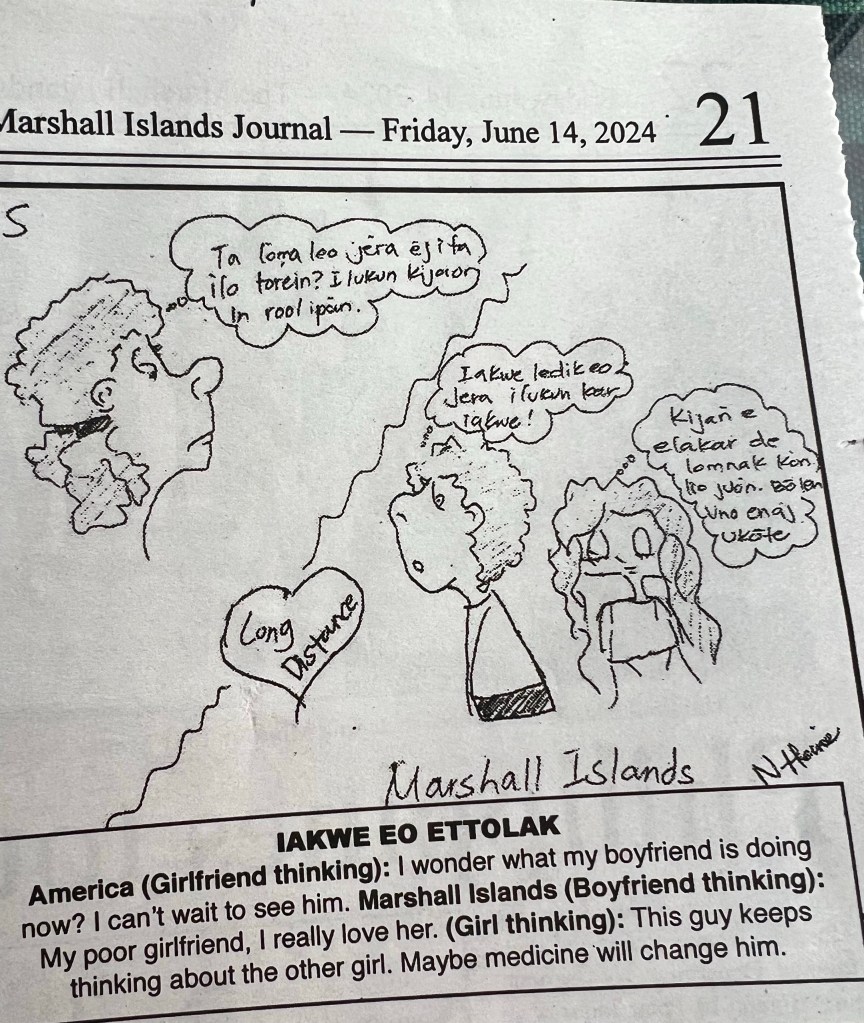 Marshall Islands Journal — Friday, June 14, 2024 21
S
Ta ḷoṃa leo jera ej ita
ilo torein? I lukun kijoror
in rool ipān.
Iakwe ledik eo
jera ilukun kar
iakwe!
Kijañ e
elakar de
lomnak kon
lio juon. Bōlen
uno enāj
ukōte
Long
Distance
Marshall Islands
IAKWE EO ETTOLAK
America (Girlfriend thinking): I wonder what my boyfriend is doing
now? I can't wait to see him. Marshall Islands (Boyfriend thinking):
My poor girlfriend, I really love her. (Girl thinking): This guy keeps
thinking about the other girl. Maybe medicine will change him.